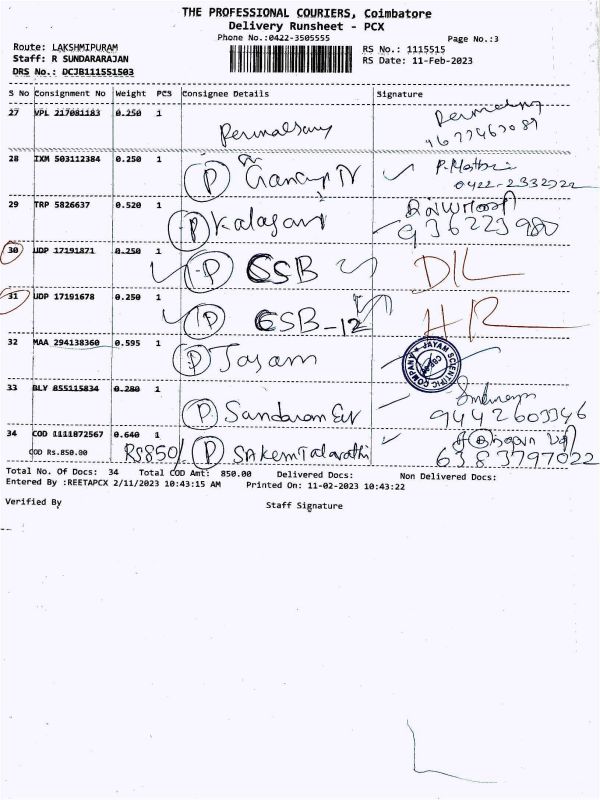 THE PROFESSIONAL COURIERS, Coimbatore
Delivery Runsheet - PCX
Phone No.:0422-3505555
Page No.:3
Route: LAKSHMIPURAM
RS No.: 1115515
Staff: R SUNDARARAJAN
RS Date: 11-Feb-2023
DRS No.: DCJB111551503
S No Consignment No Weight PCS Consignee Details Signature
27 VPL 217081183 0.250 1
28 IXM 503112384 0.250 1 P
29 TRP 5826637 0.520 1 P
30 UDP 17191871 0.250 1 P SSB DIL
31 UDP 17191678 0.250 1 P HR
32 MAA 294138360 0.595 1 P Jayam JAYAM SCIENTIFIC COMPANY
33 BLY 855115834 0.280 1 P
34 COD 1111872567 0.640 1 P
COD Rs.850.00 Rs850/- 6383797022
Total No. Of Docs: 34 Total COD Amt: 850.00 Delivered Docs: Non Delivered Docs:
Entered By :REETAPCX 2/11/2023 10:43:15 AM Printed On: 11-02-2023 10:43:22
Verified By Staff Signature